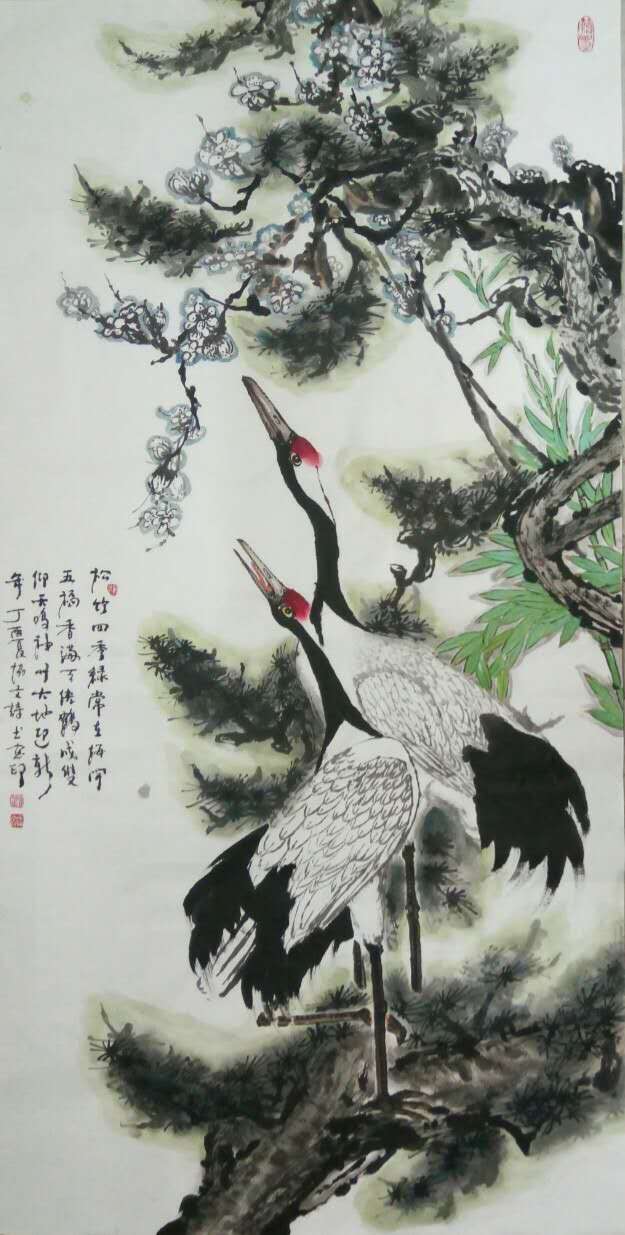 松竹四季绿常在梅开
五福香满下仙鹤成双
仰天鸣神州大地迎新
年丁酉夏杨文诗书画印